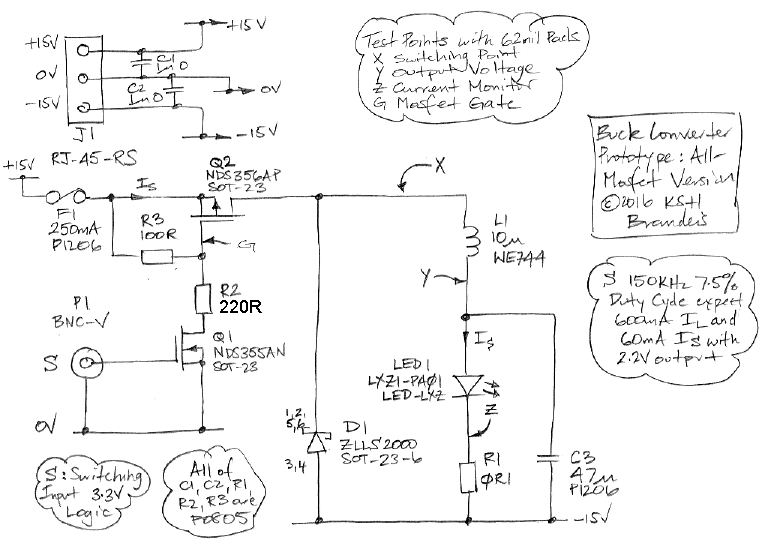 +15V
+15V
C1
1n0
0V
0V
C2
1n0
-15V
-15V
J1
Test Points with 62mil Pads
X Switching Point
Y Output Voltage
Z Current Monitor
G Mosfet Gate
Buck Converter
Prototype: All-
Mosfet Version
©2016 KSH
Brandeis
+15V
RJ-45-RS
Q2
NDS356AP
SOT-23
IS
F1
250mA
P1206
R3
100R
G
X
L1
10μ
WE744
Y
R2
220R
P1
BNC-V
S
Q1
NDS355AN
SOT-23
0V
S 150kHz 7.5%
Duty Cycle expect
600mA IL and
60mA IS with
2.2V output
IS
LED1
LXZ1-PA01
LED-LXZ
Z
1,2,
5,6
3,4
D1
ZLLS2000
SOT-23-6
R1
0R1
C3
47μ
P1206
-15V
S: Switching
Input 3.3V
Logic
All of
C1, C2, R1,
R2, R3 are
P0805